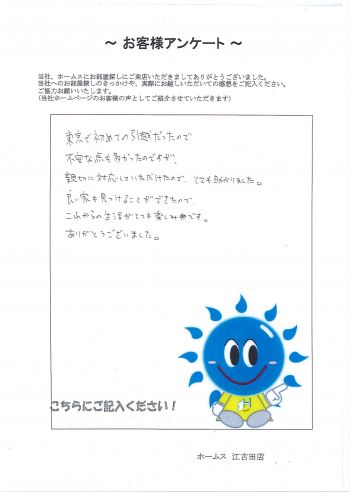 ～ お客様アンケート ～
当社、ホームスにお部屋探しにご来店いただきましてありがとうございました。
当社へのお部屋探しのきっかけや、実際にお越しいただいての感想をご記入ください。
ご協力お願いいたします。
(当社ホームページのお客様の声としてご紹介させていただきます)
東京で初めての引越だったので
不安な点も多かったのですが、
親切に対応していただけたので、とても助かりました。
良い家も見つけることができたので、
これからの生活がとても楽しみです。
ありがとうございました。
こちらにご記入ください！
ホームス 江古田店